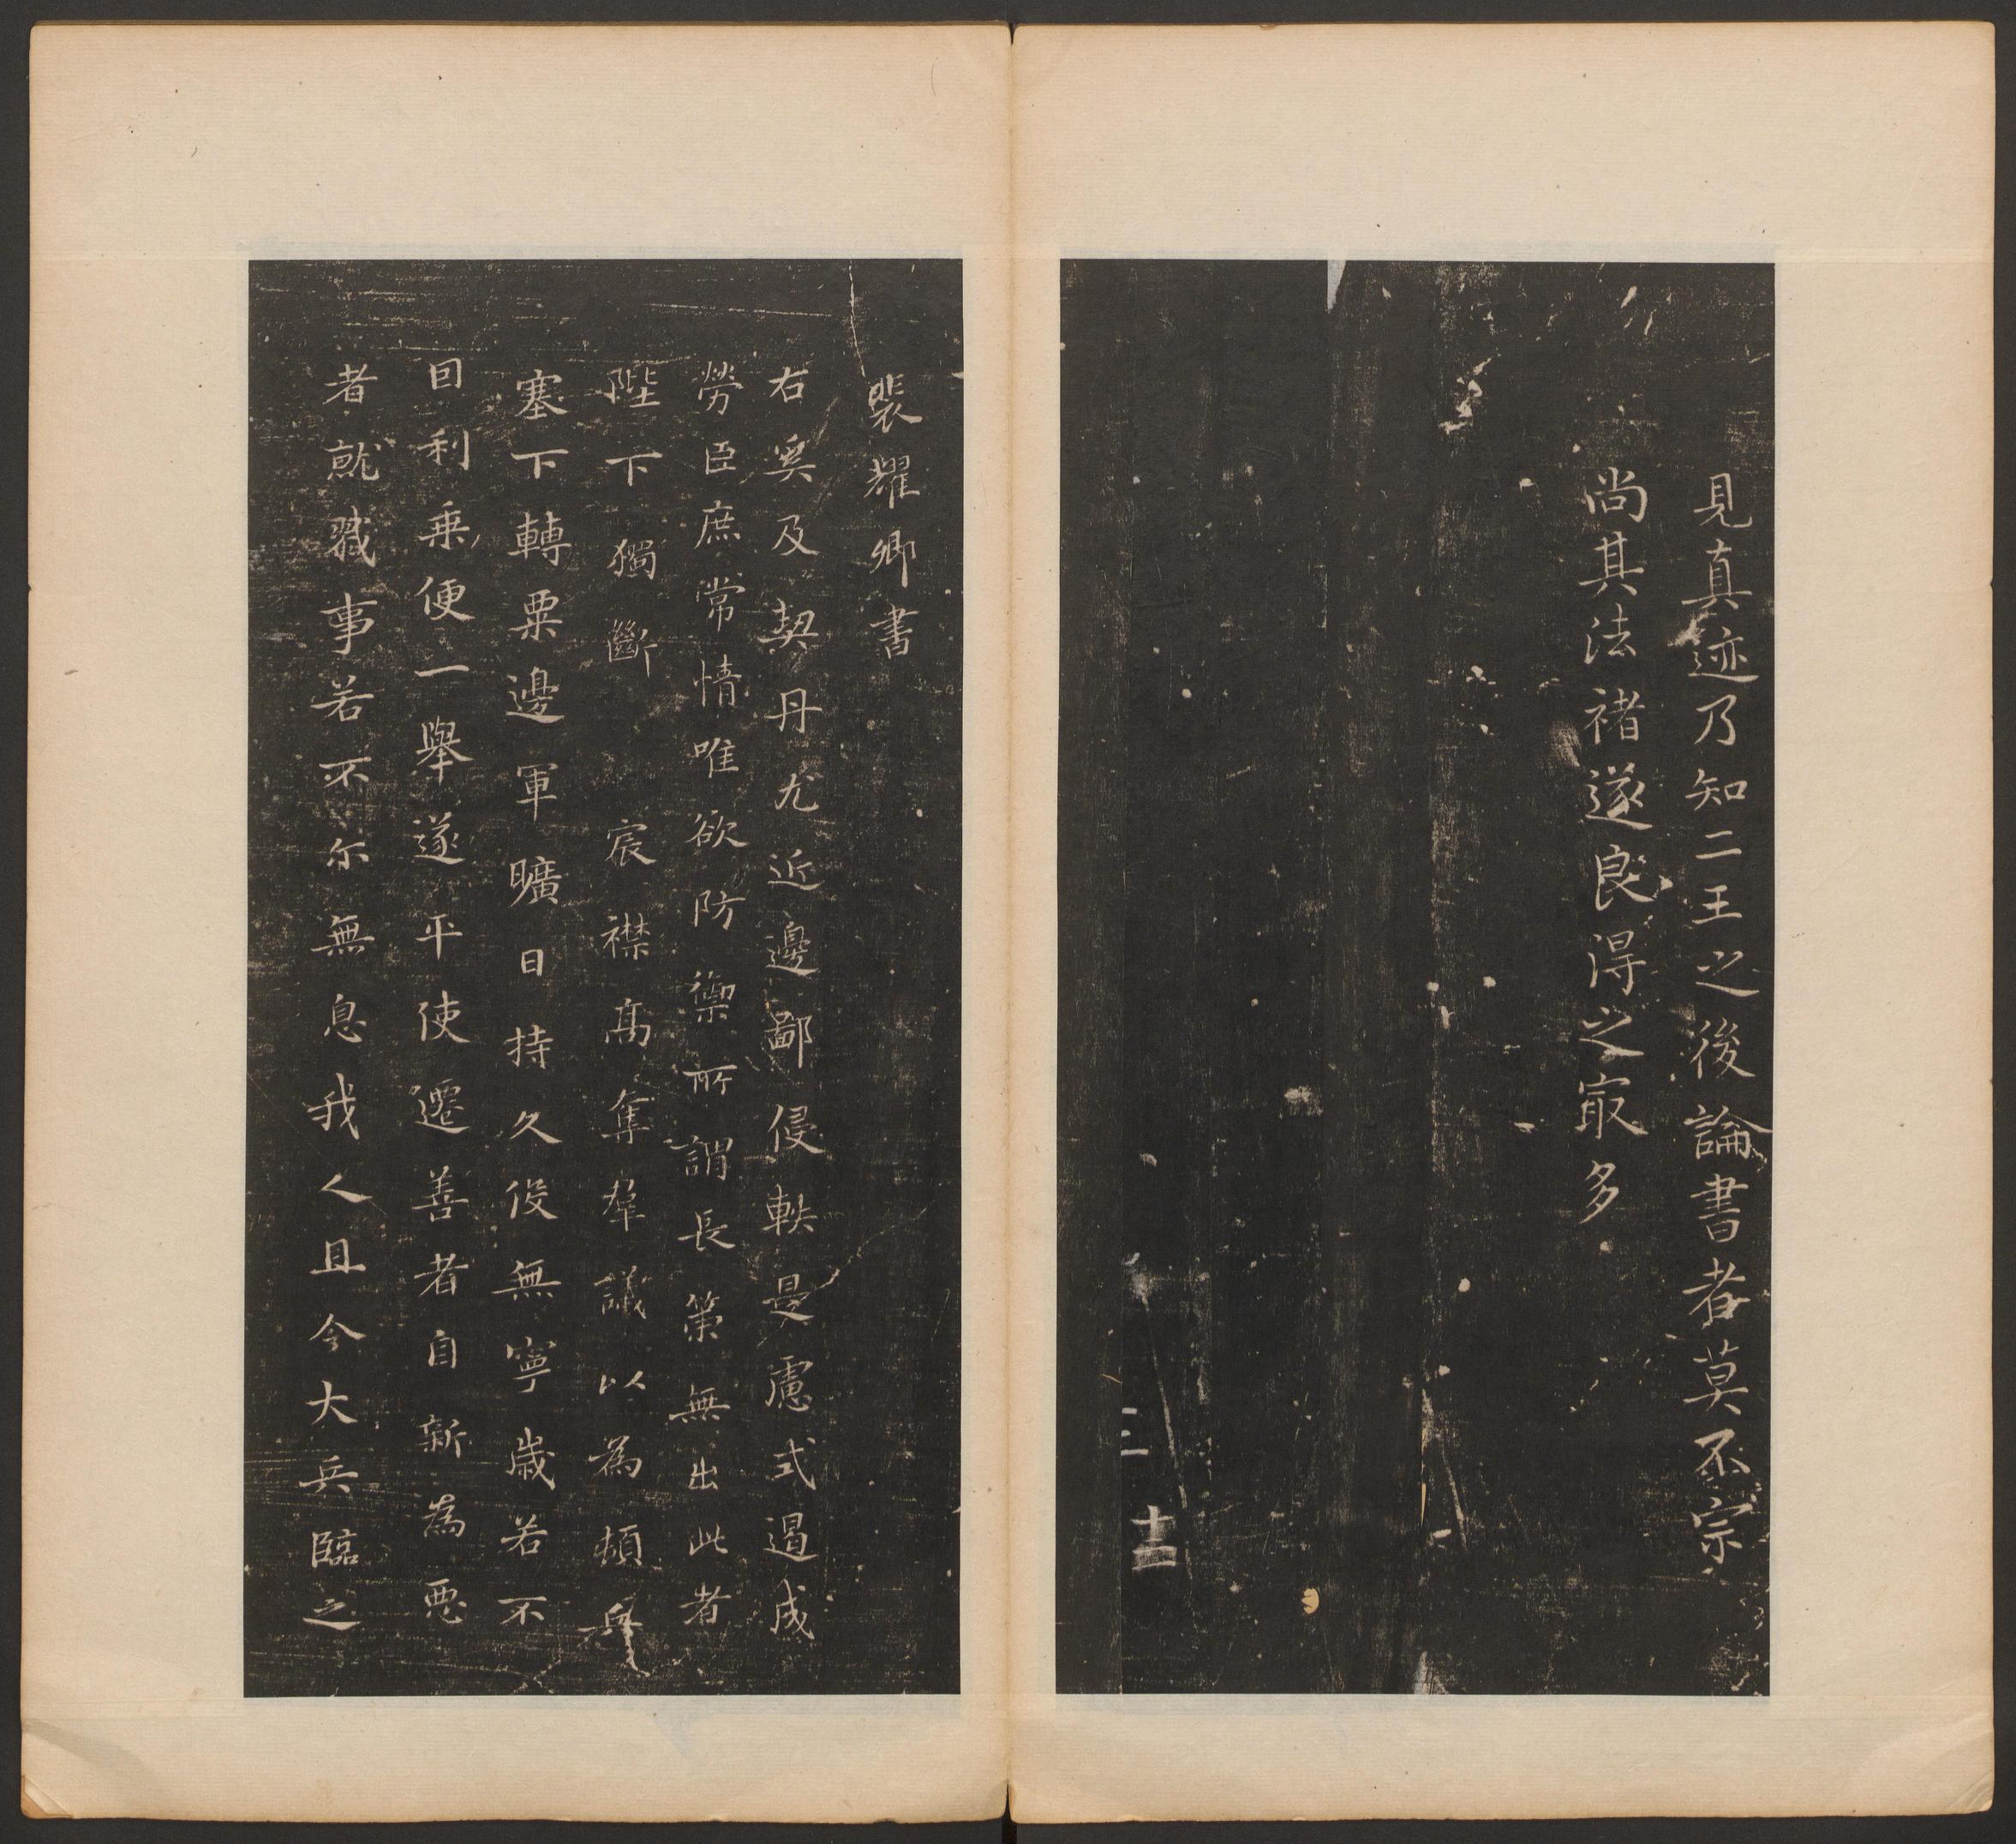 見真迹乃知二王之後論書者莫不宗
尚其法褚遂良得之㝡多
三 十三
裴耀卿書
右奚及契丹尤近邊鄙侵軼是慮式遏成
勞臣庶常情唯欲防禦所謂長策無出此者
陛下獨斷 宸襟高奪羣議以為頓兵
塞下轉粟邊軍曠日持久役無寧歲若不
因利乗便一舉遂平使遷善者自新為惡
者就戮事若不尔無息我人且今大兵臨之